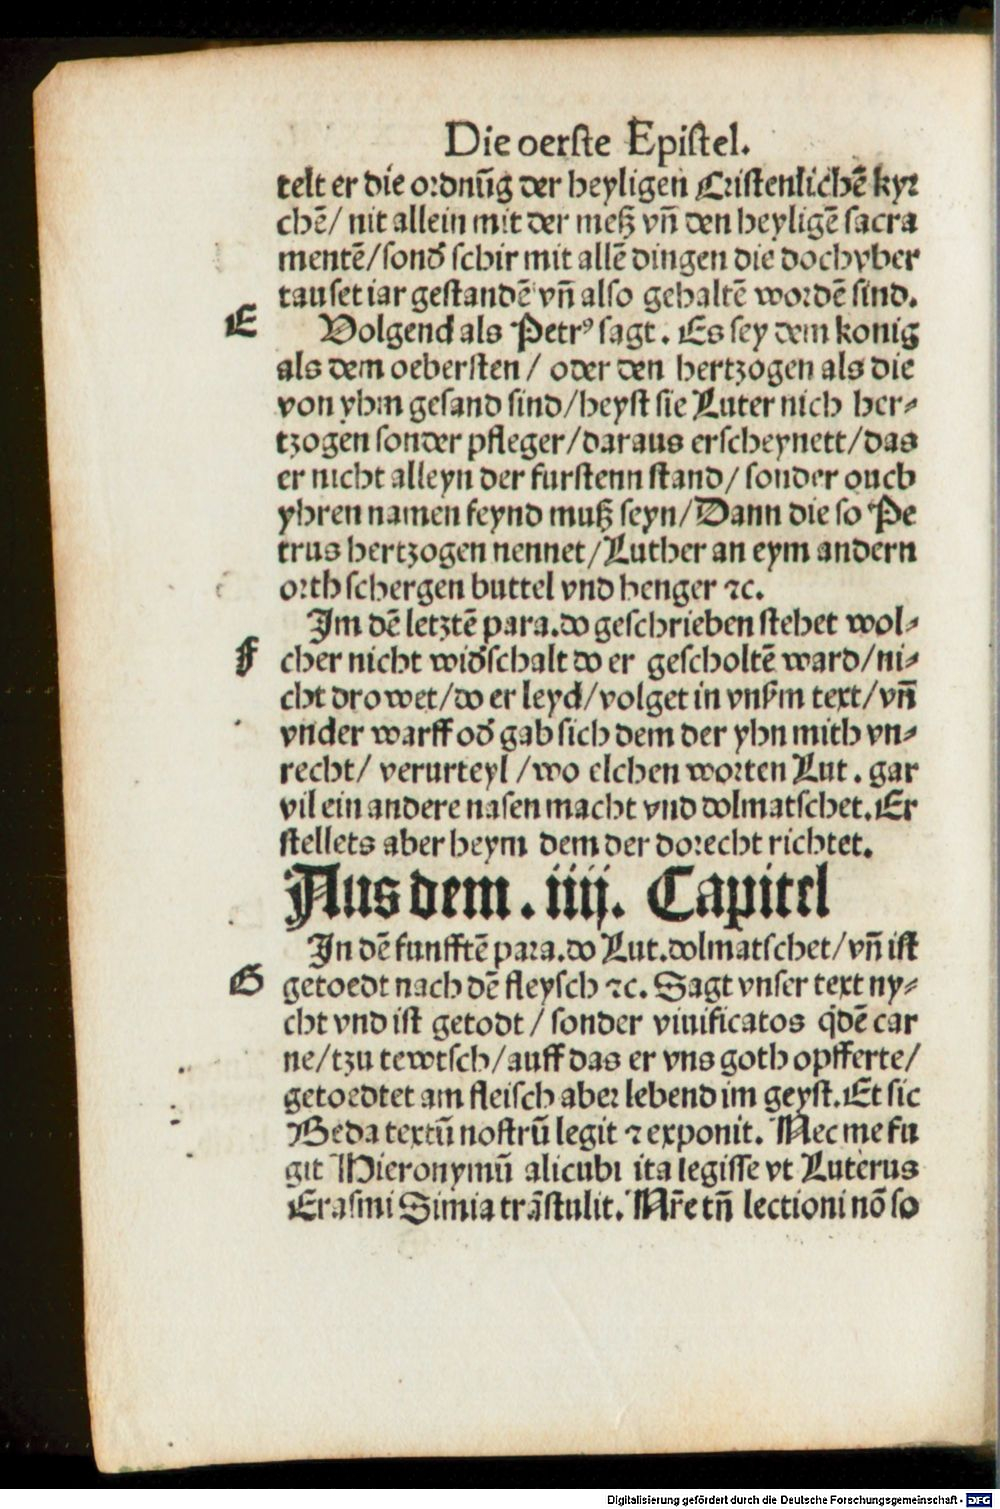 Die oerste Epistel.
telt er die ordnūg der heyligen Cristenlichē kyr
chē/ nit allein mit der meß vñ den heyligē sacra
mentē/sond̄ schir mit allē dingen die doch vber
tauset iar gestandē vñ also gehaltē wordē sind.
E
Volgend als Petrꝰ sagt. Es sey dem konig
als dem oebersten / oder den hertzogen als die
von yhm gesand sind/heyst sie Luter nich her⸗
tzogen sonder pfleger/daraus erscheynett/das
er nicht alleyn der furstenn stand/ sonder ouch
yhren namen feynd muß seyn/Dann die so Pe
trus hertzogen nennet/Luther an eym andern
orth schergen buttel vnd henger ⁊c.
Im dē letztē para.do geschrieben stehet wol⸗
F
cher nicht wid̄schalt do er gescholtē ward/ni⸗
cht drowet/do er leyd/volget in vnßm text/vñ
vnder warff od̄ gab sich dem der yhn mith vn⸗
recht/ verurteyl /wo elchen worten Lut. gar
vil ein andere nasen macht vnd dolmatschet.Er
stellets aber heym dem der do recht richtet.
Aus dem. iiij. Capitel
In dē funfftē para.do Lut.dolmatschet/vñ ist
G
getoedt nach dē fleysch ⁊c. Sagt vnser text ny⸗
cht vnd ist getodt / sonder viuificatos q̇dē car
ne/tzu tewtsch/auff das er vns goth opfferte/
getoedtet am fleisch aber lebend im geyst.Et sic
Beda textū nostrū legit ⁊ exponit. Nec me fu
git Hieronymū alicubi ita legisse vt Luterus
Erasmi Simia trāstulit. Nr̄e tñ lectioni nō so
Digitalisierung gefördert durch die Deutsche Forschungsgemeinschaft - DFG